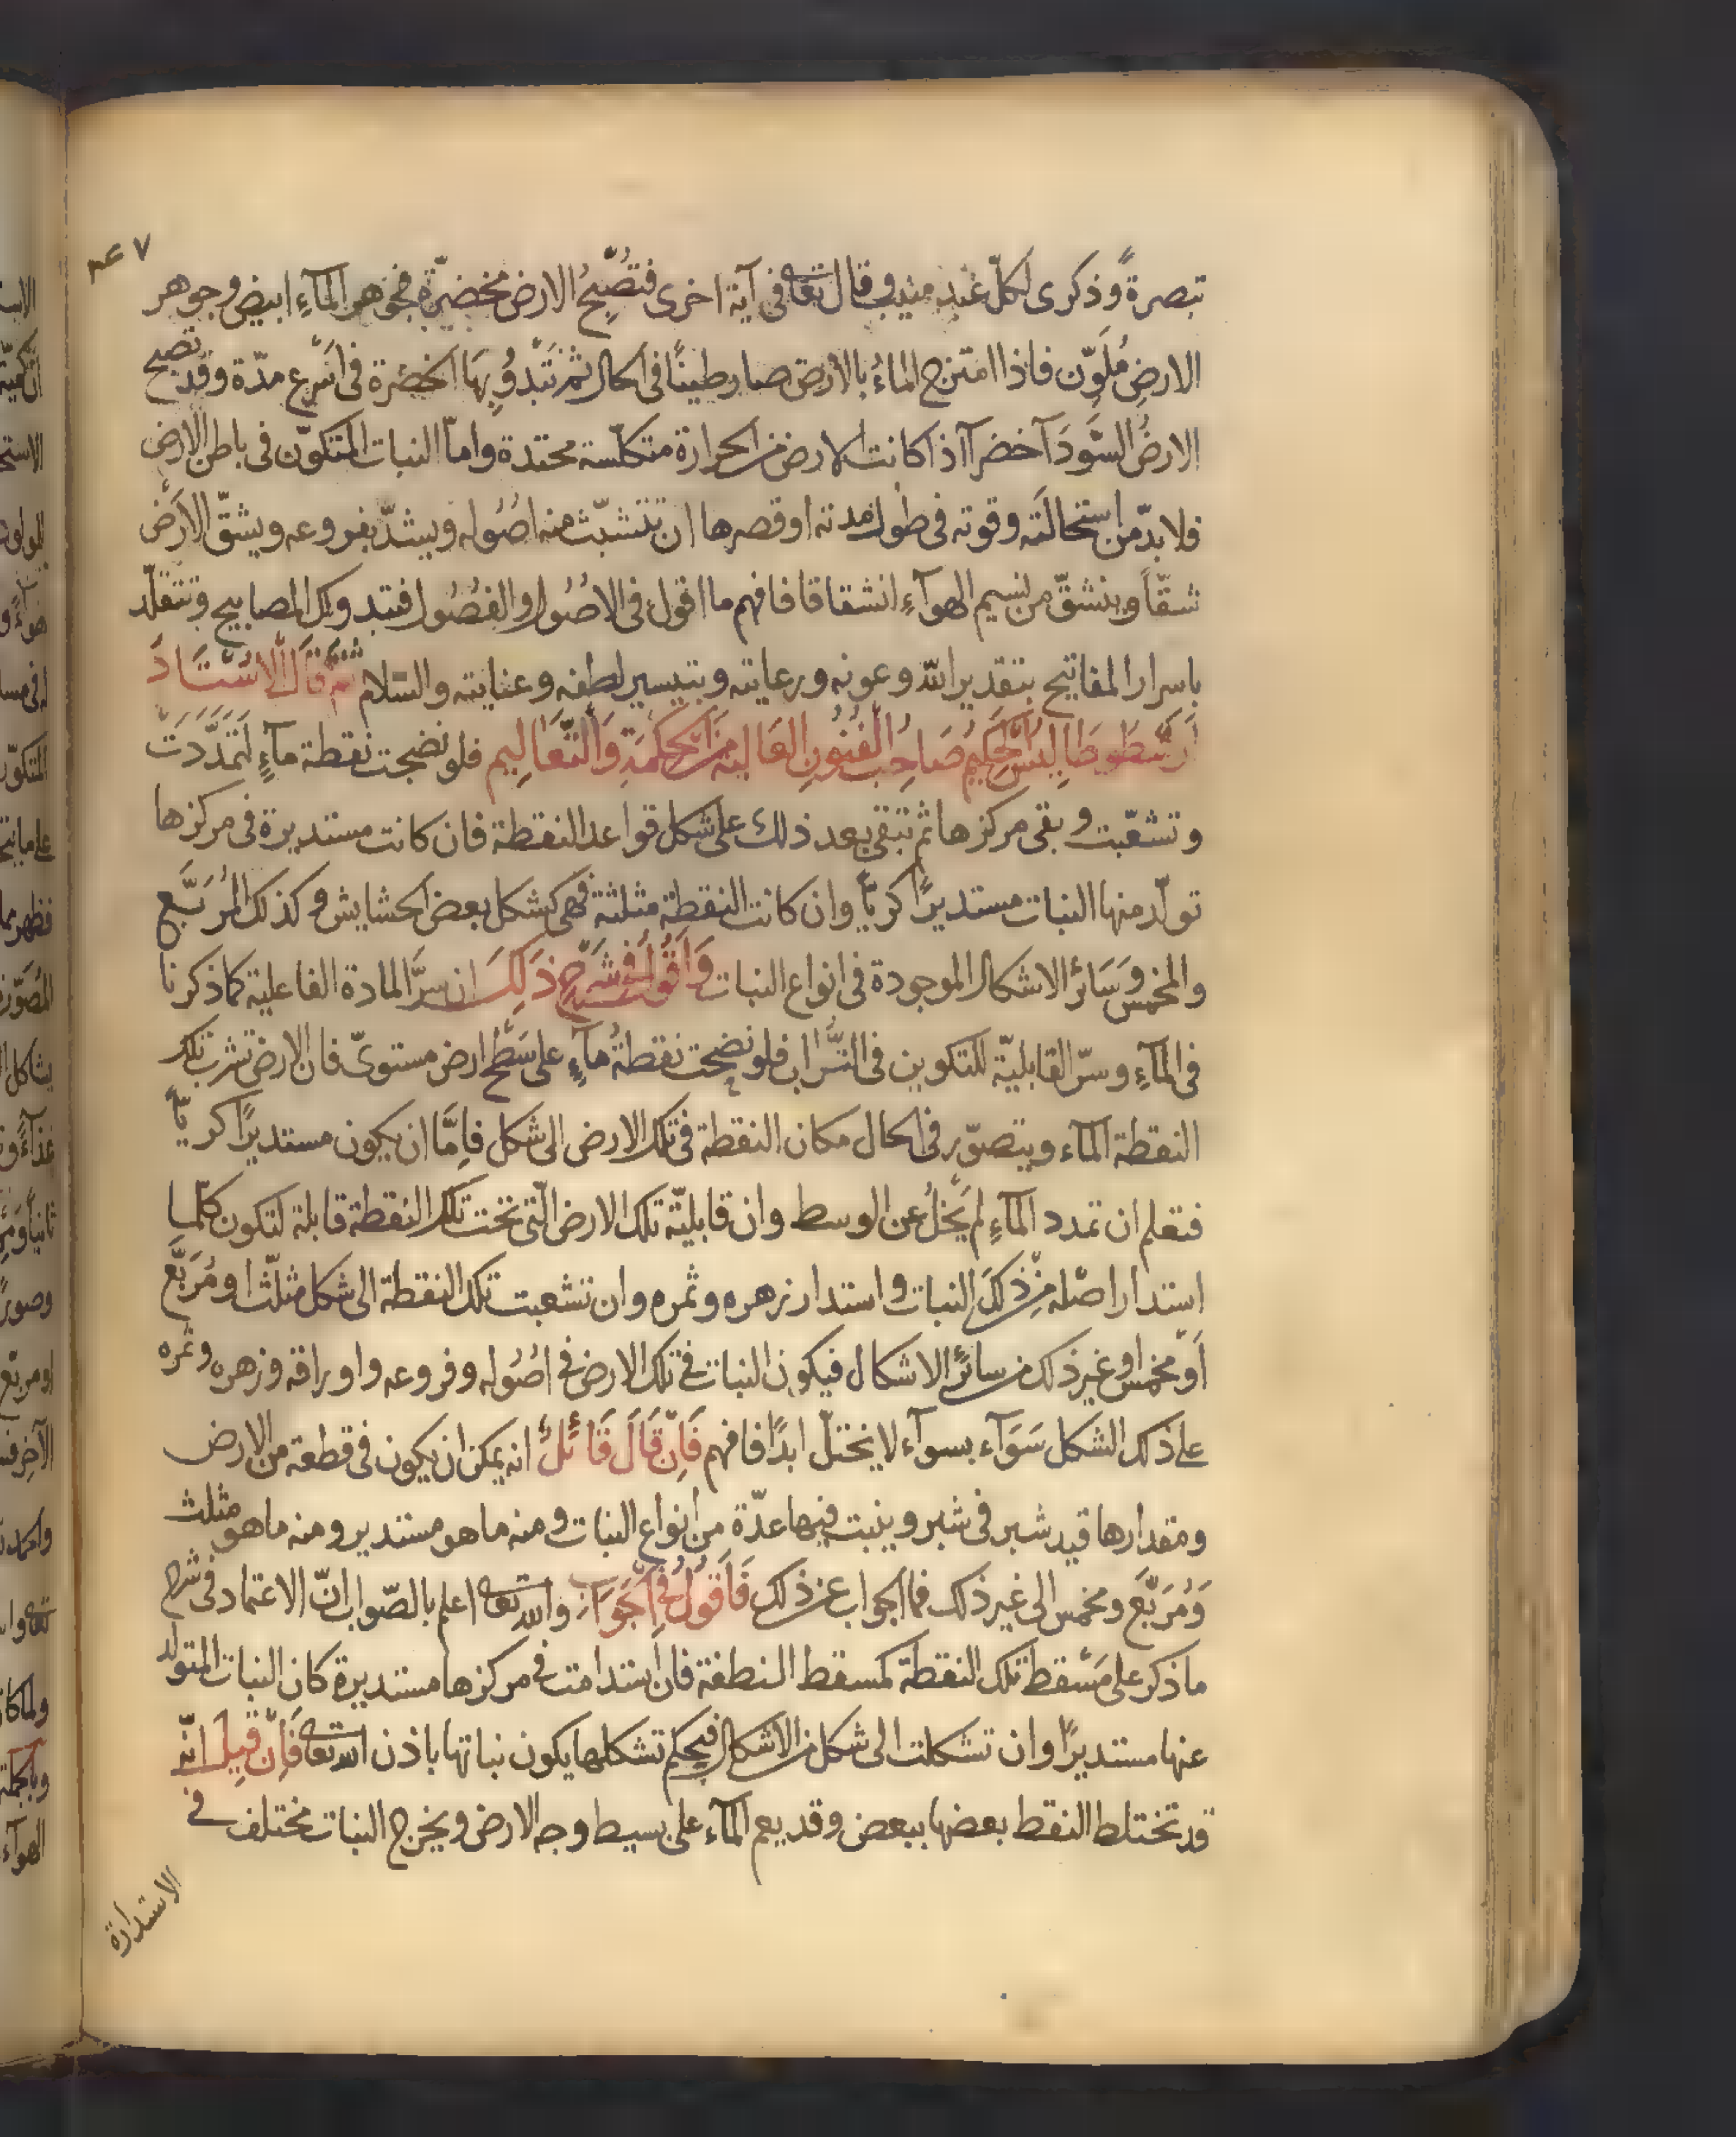 تبصرةً وذكرى لكلّ عبد منيب وقال تعالى في آية اخرى فتُصبِحُ الارض مخضرّة فجوهر المآءِ ابيض وجوهر
الارضِ مُلَوّن فاذا امتزج الماءُ بالارض صار طينًا في الحال ثم تَبْدُو بِهَا الخضرة في اَسْرع مدّة وقد تصبح
الارضُ السَّودَآ خضرآ اذا كانت الارض من الحرارة متكلّسة محتدة وامّا النبات المتكوّن في باطن الارض
فلا بدّ من استحالَتِه وقوته في طول مدته او قصرها ان تتشبّث منه اصُوله ويشدّ بفروعه ويشقّ الاَرْض
شقّاً وينشقّ من نسيم الهوآءِ انشقاقا فافهم ما اقول في الاصُول والفصُول فتبدو لك المصابيح وتتقلّد
باسرار المفاتيح بتقدير الله وعونه ورعايته وبتيسير لطفه وعنايته والسّلام ثُمَّ قَالَ الاُسْتَاذ
اَرَسْطُوطَالِيسُ الحَكِيمُ صَاحِبُ الفُنُونِ العَالِيَة مِنَ الحِكْمَةِ وَالتَّعَالِيم فلو نضجت نقطة مآءٍ لَتَمَدَّدَتْ
وتشعّبت وبقى مركزها ثم تبقى بعد ذلك على شكل قواعد النقطة فان كانت مستديرة في مركزها
تولّد منها النبات مستديرًا كريّاً وان كانت النقطة مثلثة فهى كشكل بعض الحشايش وكذلك المُرَبَّع
والمخمس وَسَائر الاشكال الموجودة في انواع النبات وَاَقُولُ في شَرْحِ ذَلِكَ ان سِرَّ المادة الفاعلية كما ذكرنا
في المآءِ وسرّ القابليّة للتكوين في التُّرَاب فلو نضجت نقطةُ مآءٍ على سَطْح ارض مستوىّ فان الارض تشرب تلك
النقطة المآء ويتصوّر في الحال مكان النقطة في تلك الارض الى شكل فاِمَّا ان يكون مستديرًا كريّاً
فتعلم ان تمدد المآءِ لم يَخْلُ عن الوسط وان قابليّة تلك الارض الّتى تحت تلك النقطة قابلة لتكون كلّما
استدار اصْله مِنْ ذَلكَ النبات واستدار زهره وثمره وان تشعبت تلك النقطة الى شكل مثلّث او مُرَبَّع
اَوْ مخمس او غير ذلك من سائر الاشكال فيكون النبات في تلك الارض في اصُوله وفروعه واوراقه وزهره وثمره
على ذلك الشكل سَوَآء بسوآء لا يختلّ ابدًا فافهم فَاِنْ قَالَ قَائلٌ انه يمكن ان يكون في قطعة من الارض
ومقدارها قيد شبر في شبر وينبت فيها عدّة من انواع النبات ومنه ما هو مستدير ومنه ما هو مثلث
وَمُرَبَّع ومخمس الى غير ذلك فما الجواب عن ذلك فَاَقُولُ في الجَوَاب والله تعالى اعلم بالصّواب انّ الاعتماد في شرح
ما ذكر على مَسْقط تلك النقطة كمسقط النطفة فان استدامت في مركزها مستديرة كان النبات المتولّد
عنها مستديرًا وان تشكلت الى شكل من الاشكال فبحكم تشكلها يكون نباتها باذن الله تعالى فَاِنْ قِيلَ انّه
قد تختلط النقط بعضها ببعض وقد يعم المآء على بسيط وجه الارض ويخرج النبات مختلف في
الاستدارة